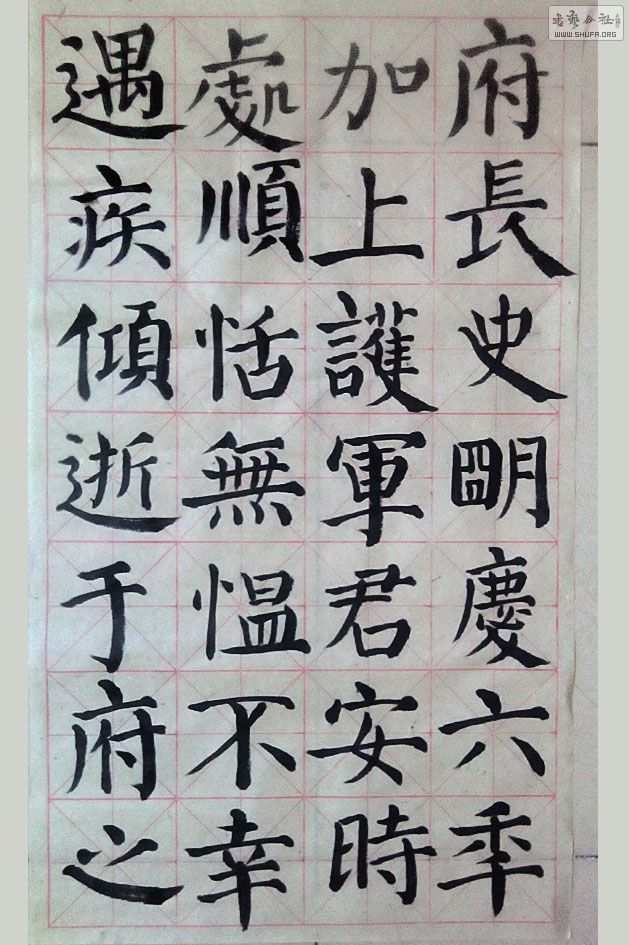 府長史朙慶六秊
加上護軍君安時
處順恬無慍不幸
遇疾傾逝于府之
書藝公社
WWW.SHUFA.ORG